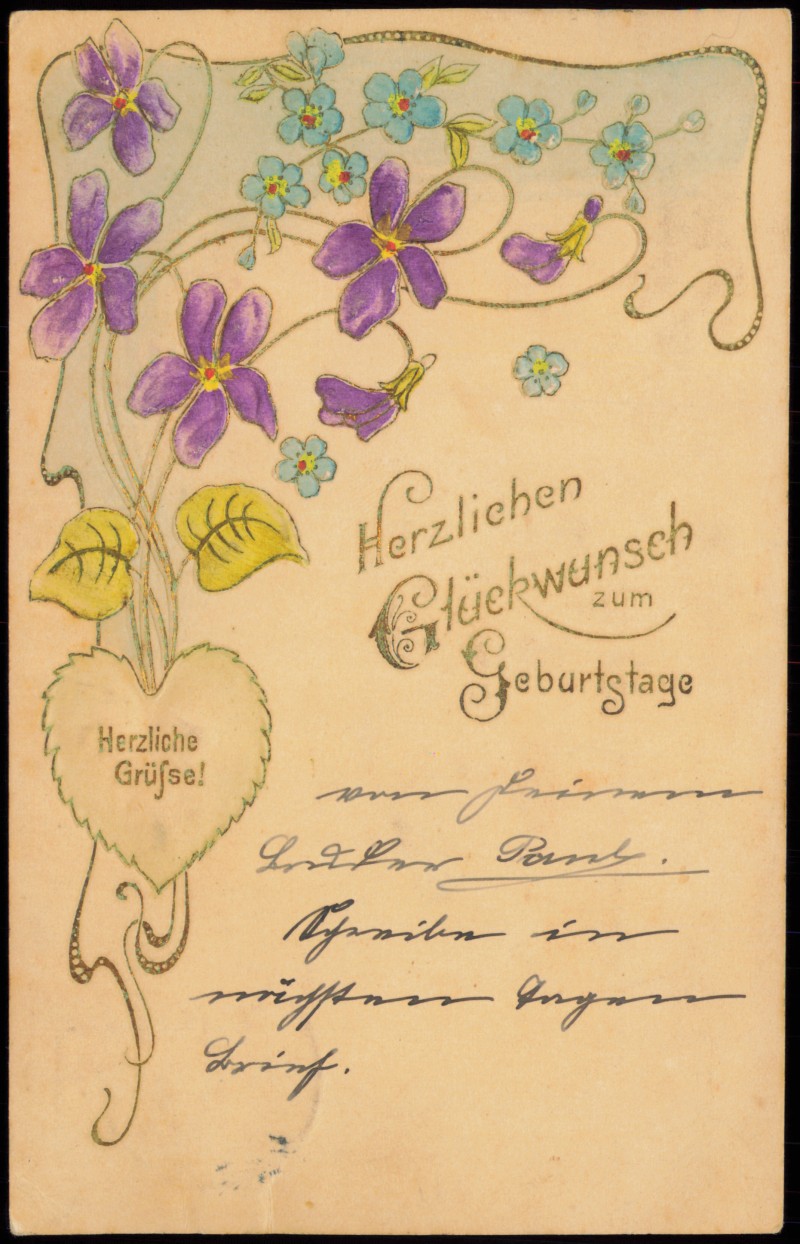 Herzlichen
Glückwunsch
zum
Geburtstage
Herzliche
Grüſse!
von Deinem
Bruder Paul.
Schreibe in
nächsten Tagen
Brief.